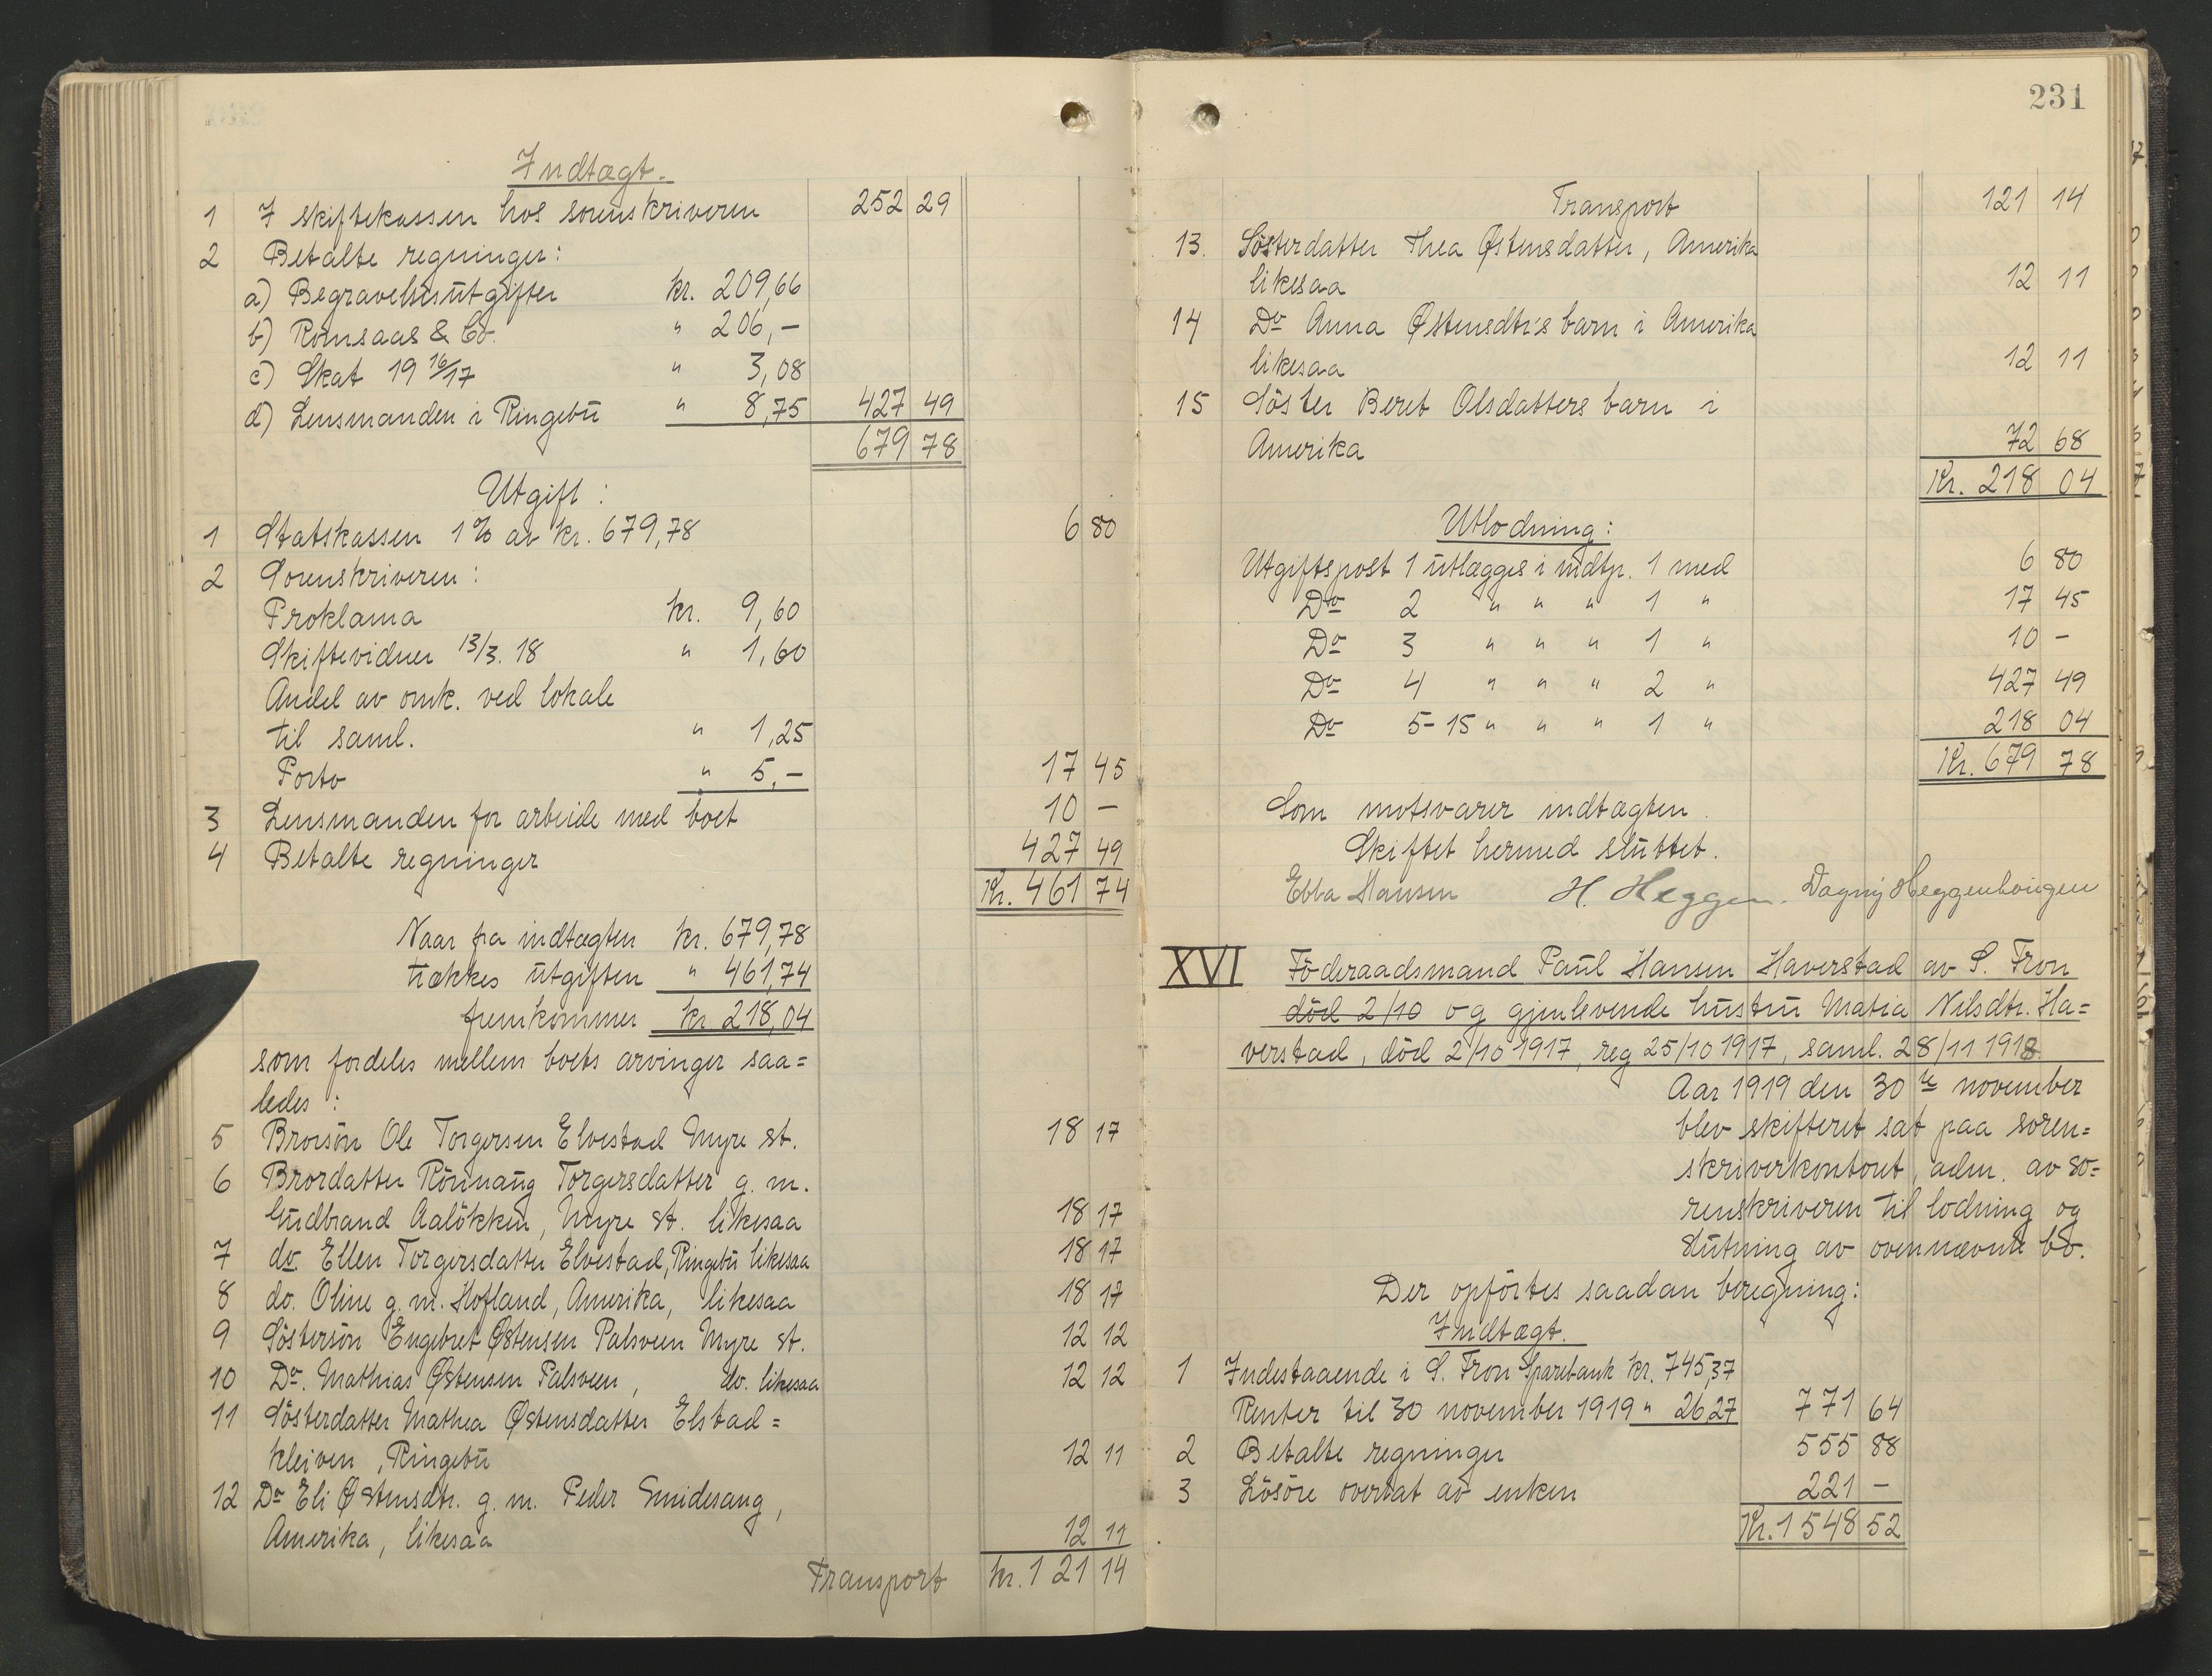 Indtægt.
1 I skiftekassen hos sorenskriveren 252 29
2 Betalte regninger:
a) Begravelsesutgifter kr. 209,66
b) Romsaas & Co. " 206,-
c) Skat 19 16/17 " 3,08
d) Lensmanden i Ringebu " 8,75 427 49
679 78
Utgift:
1 Statskassen 1% av kr. 679,78 6 80
2 Sorenskriveren:
Proklama kr. 9,60
Skiftevidner 13/3. 18 " 1,60
Andel av omk. ved lokale
til saml. " 1,25
Porto " 5,- 17 45
3 Lensmanden for arbeide med boet 10 -
4 Betalte regninger 427 49
Kr. 461 74
Naar fra indtægten kr. 679,78
trækkes utgiften " 461,74
fremkommer kr 218,04
som fordeles mellem boets arvinger saa=
ledes:
5 Brorsön Ole Torgersen Elvestad Myre st. 18 17
6 Brordatter Rönnaug Torgersdatter g. m.
Gudbrand Aalökken, Myre st. likesaa 18 17
7 do. Ellen Torgersdatter Elvestad, Ringebu likesaa 18 17
8 do. Oline g. m. Hofland, Amerika, likesaa 18 17
9 Söstersön Engebret Østensen Palsveen Myre st. 12 12
10 Do. Mathias Østensen Palsveen, do. likesaa 12 12
11 Sösterdatter Mathea Østensdatter Elstad=
kleiven, Ringebu 12 11
12 Do Eli Østensdtr. g. m. Peder Smidesang,
Amerika, likesaa 12 11
Transport kr. 121 14
231
Transport 121 14
13. Sösterdatter Thea Østensdatter, Amerika
likesaa 12 11
14 Do Anna Østensdtr's barn i Amerika
likesaa 12 11
15 Söster Beret Olsdatters barn i
Amerika 72 68
Kr. 218 04
Utlodning:
Utgiftspost 1 utlægges i indtp. 1 med 6 80
Do 2 " " " 1 " 17 45
Do 3 " " " 1 " 10 -
Do 4 " " " 2 " 427 49
Do 5-15 " " " 1 " 218 04
Kr. 679 78
Som motsvarer indtægten.
Skiftet hermed sluttet.
Ebba Hansen H. Heggen. Dagny Heggenhougen
XVI Föderaadsmand Paul Hansen Haverstad av S. Fron
död 2/10 og gjenlevende hustru Matia Nilsdtr. Ha=
verstad, död 2/10 1917, reg 25/10 1917, saml. 28/11 1918
Aar 1919 den 30te november
blev skifteret sat paa soren=
skriverkontoret, adm. av so=
renskriveren til lodning og
slutning av ovennævnte bo.
Der opförtes saadan beregning:
Indtægt.
1 Indestaaende i S. Fron Sparebank kr. 745,37
Renter til 30 november 1919 " 26,27 771 64
2 Betalte regninger 555 88
3 Lösöre overtat av enken 221 -
Kr. 1548 52